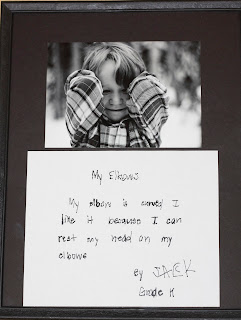 My Elbows
My elbow is curved I
like it because I can
rest my head on my
elbows
By JACK
Grade K